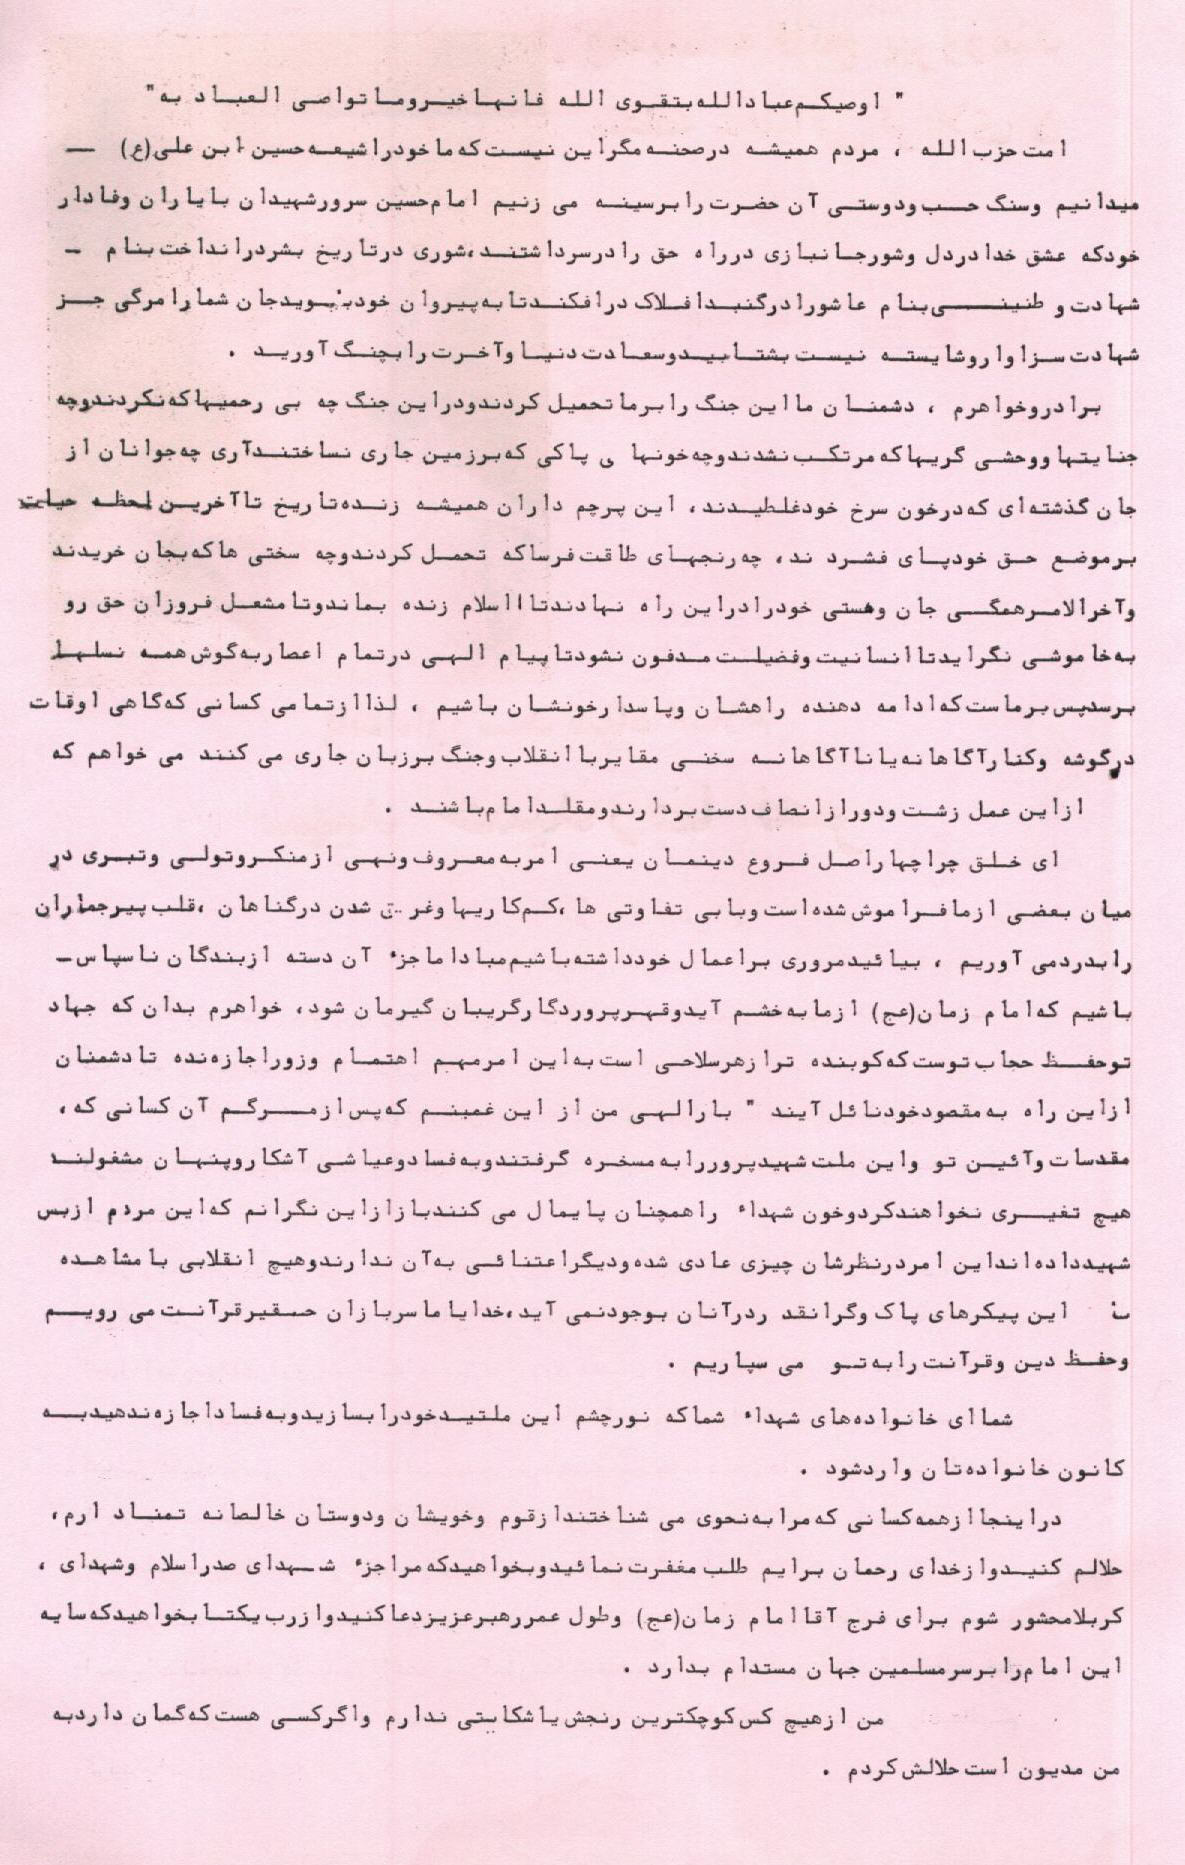 " اوصیکم عبادالله بتقوی الله فانها خیر و ما تواصی العباد به"
امت حزب الله ، مردم همیشه در صحنه مگر این نیست که ما خود را شیعه حسین ابن علی(ع) ـ
میدانیم و سنگ حب و دوستی آن حضرت را بر سینه می زنیم امام حسین سرور شهیدان با یاران وفادار
خود که عشق خدا در دل و شور جانبازی در راه حق را در سر داشتند، شوری در تاریخ بشر در انداخت بنام ـ
شهادت و طنینی بنام عاشورا در گنبد افلاک در افکند تا به پیروان خود بگوید جان شما را مرگی جز
شهادت سزاوار و شایسته نیست بشتابید و سعادت دنیا و آخرت را بچنگ آورید .
برادر و خواهرم ، دشمنان ما این جنگ را بر ما تحمیل کردند و در این جنگ چه بی رحمیها که نکردند و چه
جنایتها و وحشی گریها که مرتکب نشدند و چه خونها ی پاکی که بر زمین جاری نساختند آری چه جوانان از
جان گذشته ای که در خون سرخ خود غلطیدند، این پرچم داران همیشه زنده تاریخ تا آخرین لحظه حیات
بر موضع حق خود پای فشرد ند، چه رنجهای طاقت فرسا که تحمل کردند و چه سختی ها که بجان خریدند
و آخر الامر همگی جان و هستی خود را در این راه نهادند تا ااسلام زنده بماند و تا مشعل فروزان حق رو
به خاموشی نگراید تا انسانیت و فضیلت مدفون نشود تا پیام الهی در تمام اعصار به گوش همه نسلها
برسد پس بر ماست که ادامه دهنده راهشان و پاسدار خونشان باشیم ، لذا از تمامی کسانی که گاهی اوقات
در گوشه و کنار آگاهانه یا ناآگاهانه سخنی مقایر با انقلاب و جنگ بر زبان جاری می کنند می خواهم که
از این عمل زشت و دور از انصاف دست بردارند و مقلد امام باشند .
ای خلق چرا چهار اصل فروع دینمان یعنی امر به معروف و نهی از منکر و تولی و تبری در
میان بعضی از ما فراموش شده است و با بی تفاوتی ها ،کم کاریها و غر ق شدن در گناهان ،قلب پیر جماران
را بدرد می آوریم ، بیائید مروری بر اعمال خود داشته باشیم مبادا ما جزء آن دسته از بندگان ناسپاس ـ
باشیم که امام زمان(عج) از ما به خشم آید و قهر پروردگار گریبان گیرمان شود، خواهرم بدان که جهاد
تو حفظ حجاب توست که کوبنده تر از هر سلاحی است به این امر مهم اهتمام ورز و اجازه نده تا دشمنان
از این راه به مقصود خود نائل آیند " بارالهی من از این غمینم که پس از مرگم آن کسانی که،
مقدسات و آئین تو و این ملت شهید پرور را به مسخره گرفتند و به فساد و عیاشی آشکار و پنهان مشغولند
هیچ تغیری نخواهند کرد و خون شهداء را همچنان پایمال می کنند باز از این نگرانم که این مردم از بس
شهید داده اند این امر در نظرشان چیزی عادی شده و دیگر اعتنائی به آن ندارند و هیچ انقلابی با مشاهده
این پیکرهای پاک و گرانقد ر در آنان بوجود نمی آید، خدایا ما سربازان حقیر قرآنت می رویم
و حفظ دین و قرآنت را به تو می سپاریم .
شما ای خانواده های شهداء شما که نور چشم این ملتید خود را بسازید و به فساد اجازه ندهید به
کانون خانواده تان وارد شود .
در اینجا از همه کسانی که مرا به نحوی می شناختند از قوم و خویشان و دوستان خالصانه تمنا دارم،
حلالم کنید و از خدای رحمان برایم طلب مغفرت نمائید و بخواهید که مرا جزء شهدای صدر اسلام و شهدای ،
کربلا محشور شوم برای فرج آقا امام زمان(عج) و طول عمر رهبر عزیز دعا کنید و از رب یکتا بخواهید که سایه
این امام را بر سر مسلمین جهان مستدام بدارد .
من از هیچ کس کوچکترین رنجش یا شکایتی ندارم و اگر کسی هست که گمان دارد به
من مدیون است حلالش کردم .